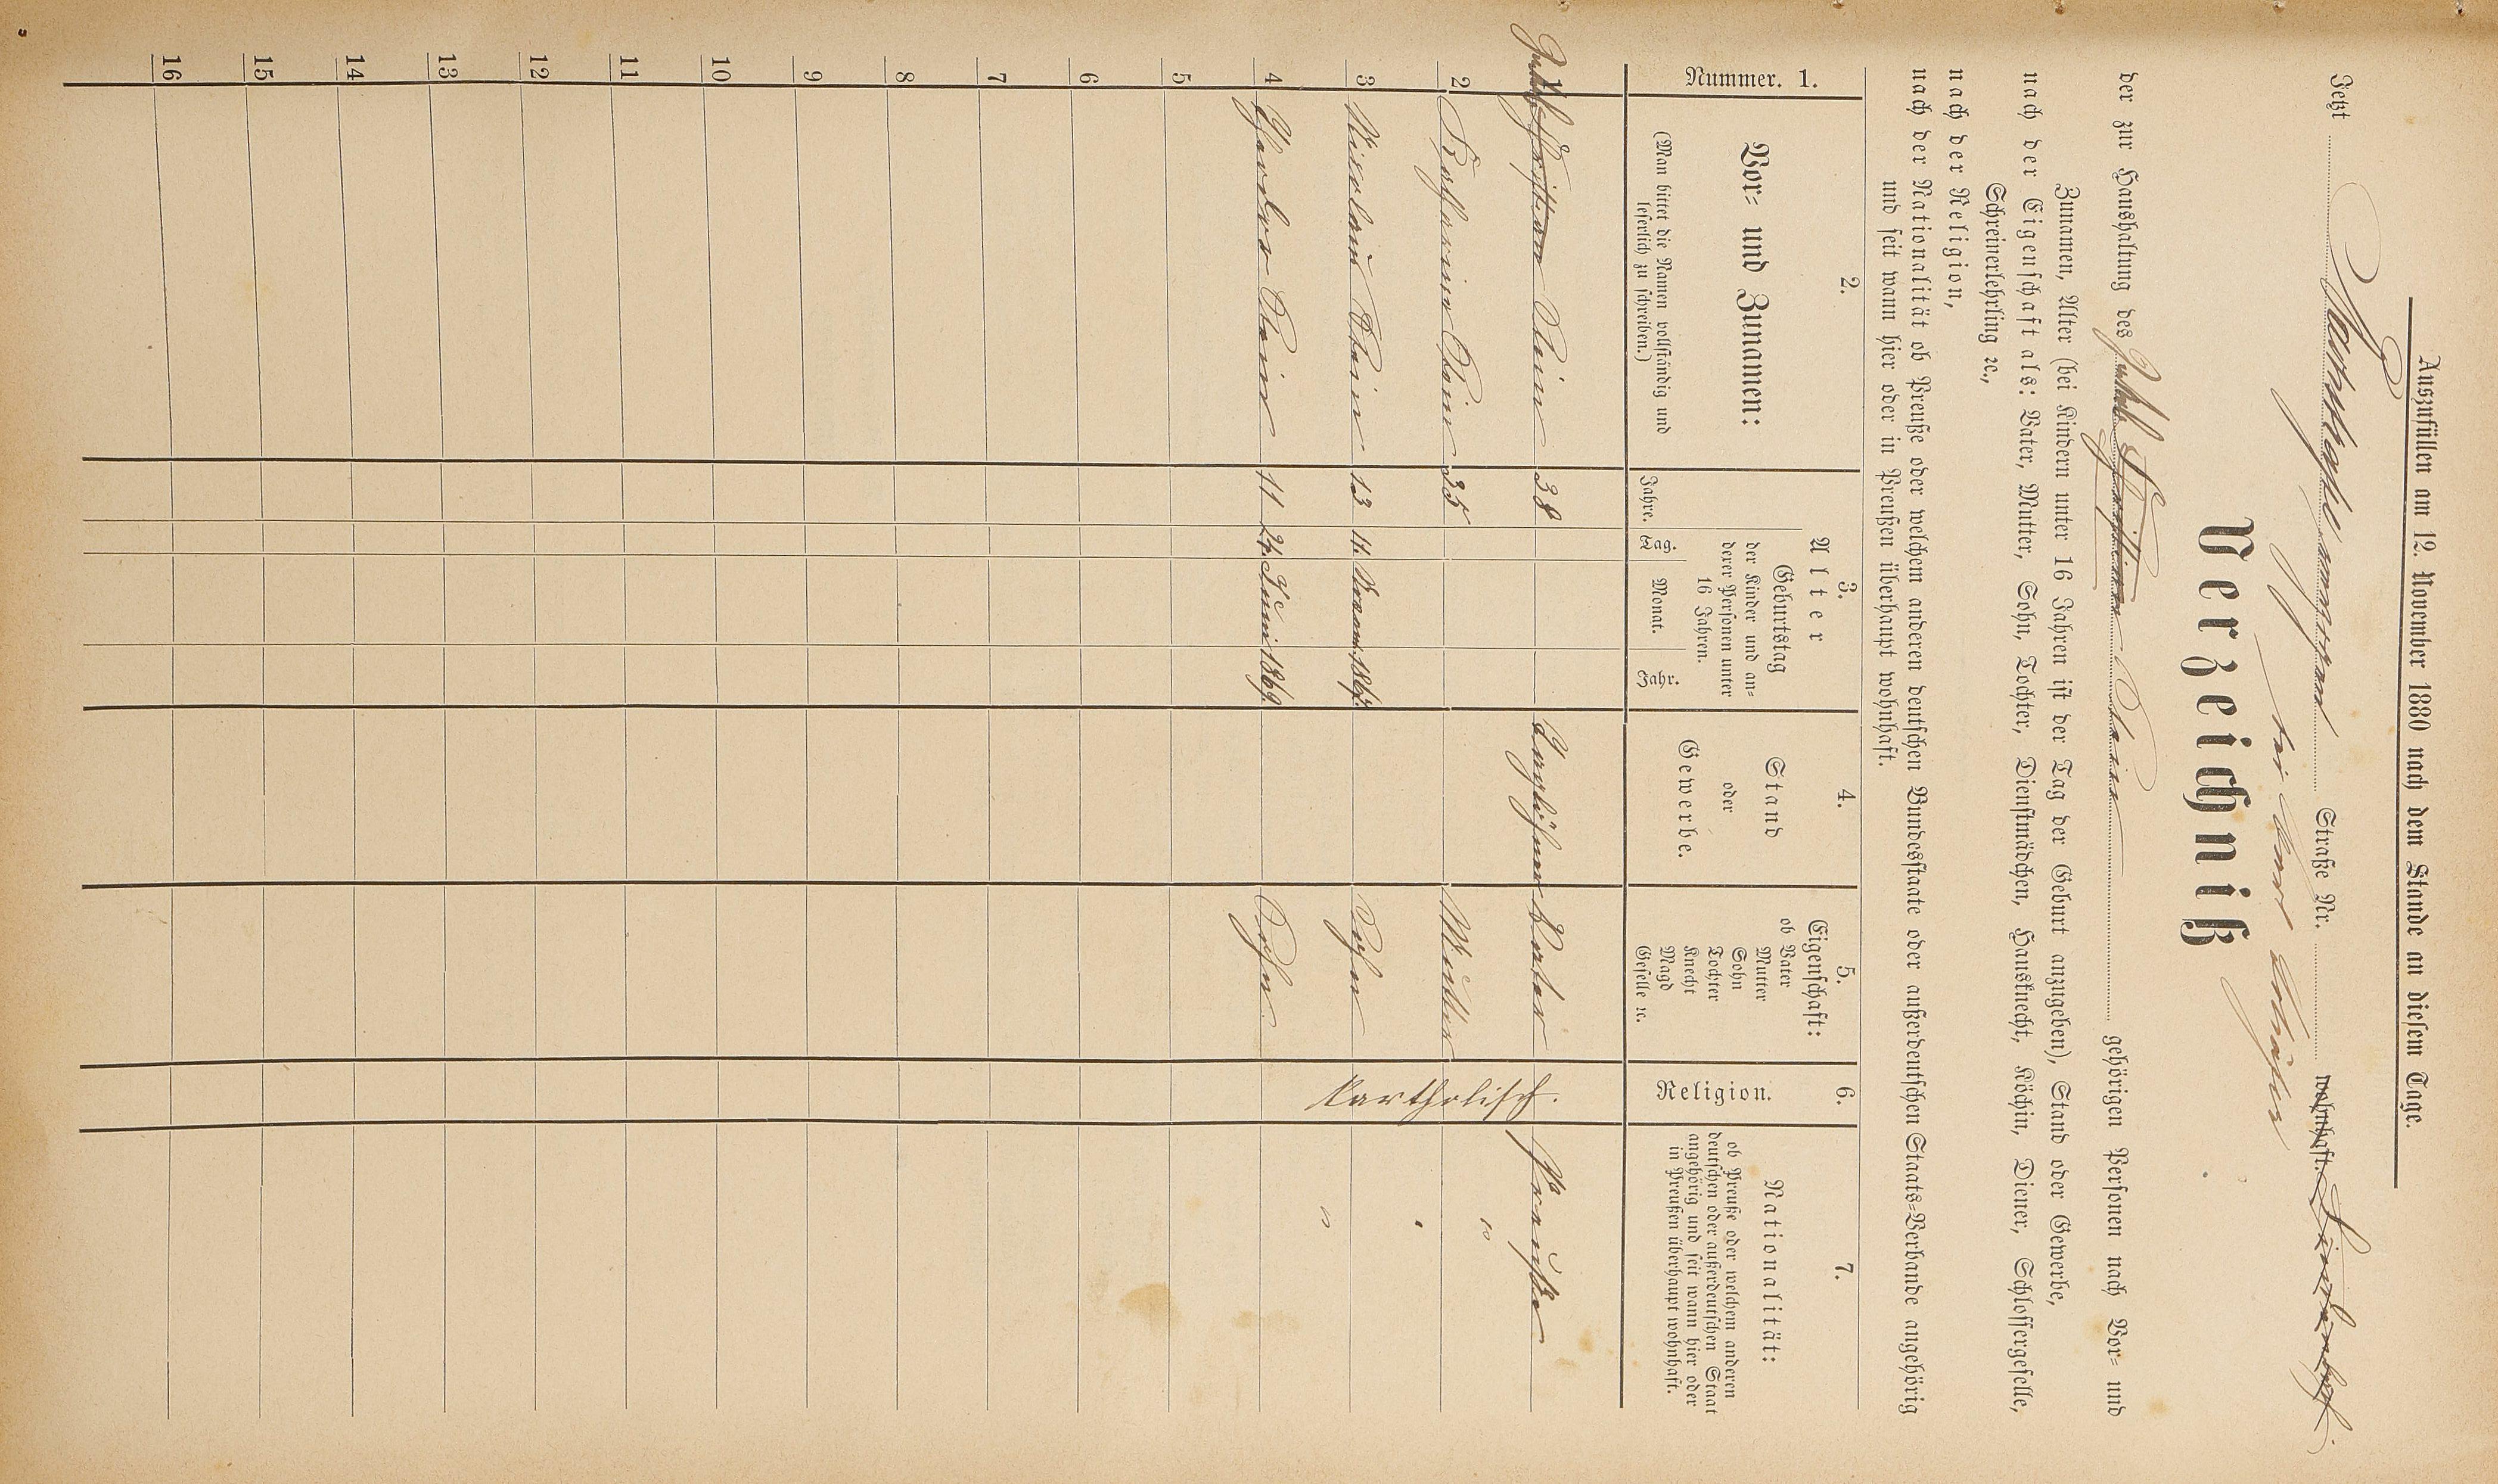 Auszufüllen am 12. November 1880 nach dem Stande an diesem Tage.
Jetzt Straße Nr. wohnhaft.
bei
Verzeichniß
der zur Haushaltung des Jakob Christian Stein gehörigen Personen nach Vor= und
Zunamen, Alter (bei Kindern unter 16 Jahren ist der Tag der Geburt anzugeben), Stand oder Gewerbe,
nach der Eigenschaft als: Vater, Mutter, Sohn, Tochter, Dienstmädchen, Hausknecht, Köchin, Diener, Schlossergeselle,
Schreinerlehrling ꝛc.,
nach der Religion,
nach der Nationalität ob Preuße oder welchem anderen deutschen Bundesstaate oder außerdeutschen Staats=Verbande angehörig
und seit wann hier oder in Preußen überhaupt wohnhaft.
Nummer. 1.
2.
Vor= und Zunamen:
(Man bittet die Namen vollständig und
leserlich zu schreiben.)
3.
Alter
Jahre.
Geburtstag
der Kinder und an=
derer Personen unter
16 Jahren.
Tag.
Monat.
Jahr.
4.
Stand
oder
Gewerbe.
5.
Eigenschaft:
ob Vater
Mutter
Sohn
Tochter
Knecht
Magd
Geselle ꝛc.
6.
Religion.
7.
Nationalität:
ob Preuße oder welchem anderen
deutschen oder außerdeutschen Staat
angehörig und seit wann hier oder
in Preußen überhaupt wohnhaft.
1 Jakob Christian Stein 38 Taglöhner Vater Preuße
2 Stein 35 Mutter "
Kartholisch.
3 Stein 13 11. 1867. Sohn
4 Stein 11 24. Juni 1869. Sohn "
5
6
7
8
9
10
11
12
13
14
15
16